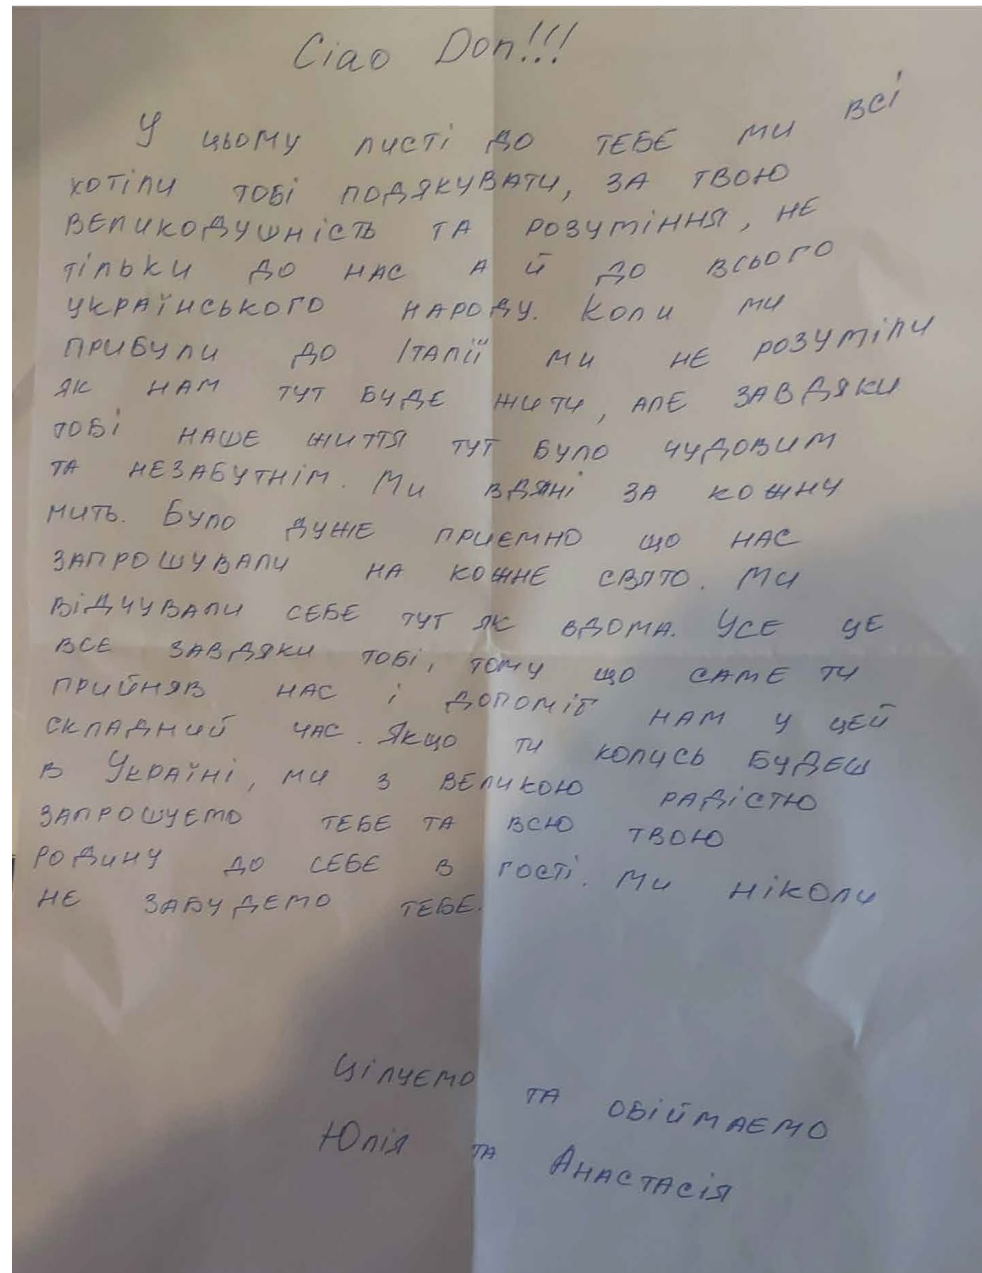 Ciao Don!!!
У цьому листі до тебе ми всі
хотіли тобі подякувати, за твою
великодушність та розуміння, не
тільки до нас а й до всього
українського народу. Коли ми
прибули до Італії ми не розуміли
як нам тут буде жити, але завдяки
тобі наше життя тут було чудовим
та незабутнім. Ми вдяні за кожну
мить. Було дуже приємно що нас
запрошували на кожне свято. Ми
відчували себе тут як вдома. Усе це
все завдяки тобі, тому що саме ти
прийняв нас і допоміг нам у цей
складний час. Якщо ти колись будеш
в Україні, ми з великою радістю
запрошуємо тебе та всю твою
родину до себе в гості. Ми ніколи
не забудемо тебе.
Цілуємо та обіймаємо
Юлія та Анастасія